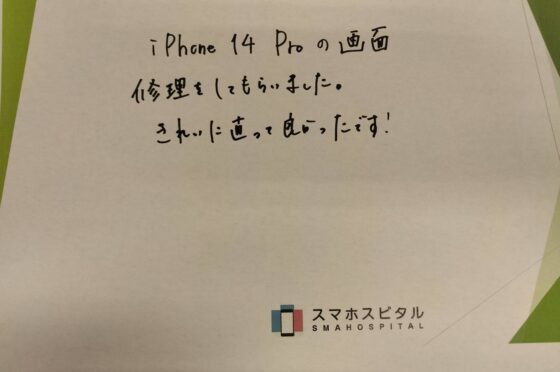 iPhone 14 Proの画面
修理をしてもらいました。
きれいに直って良かったです!
スマホスピタル
SMAHOSPITAL